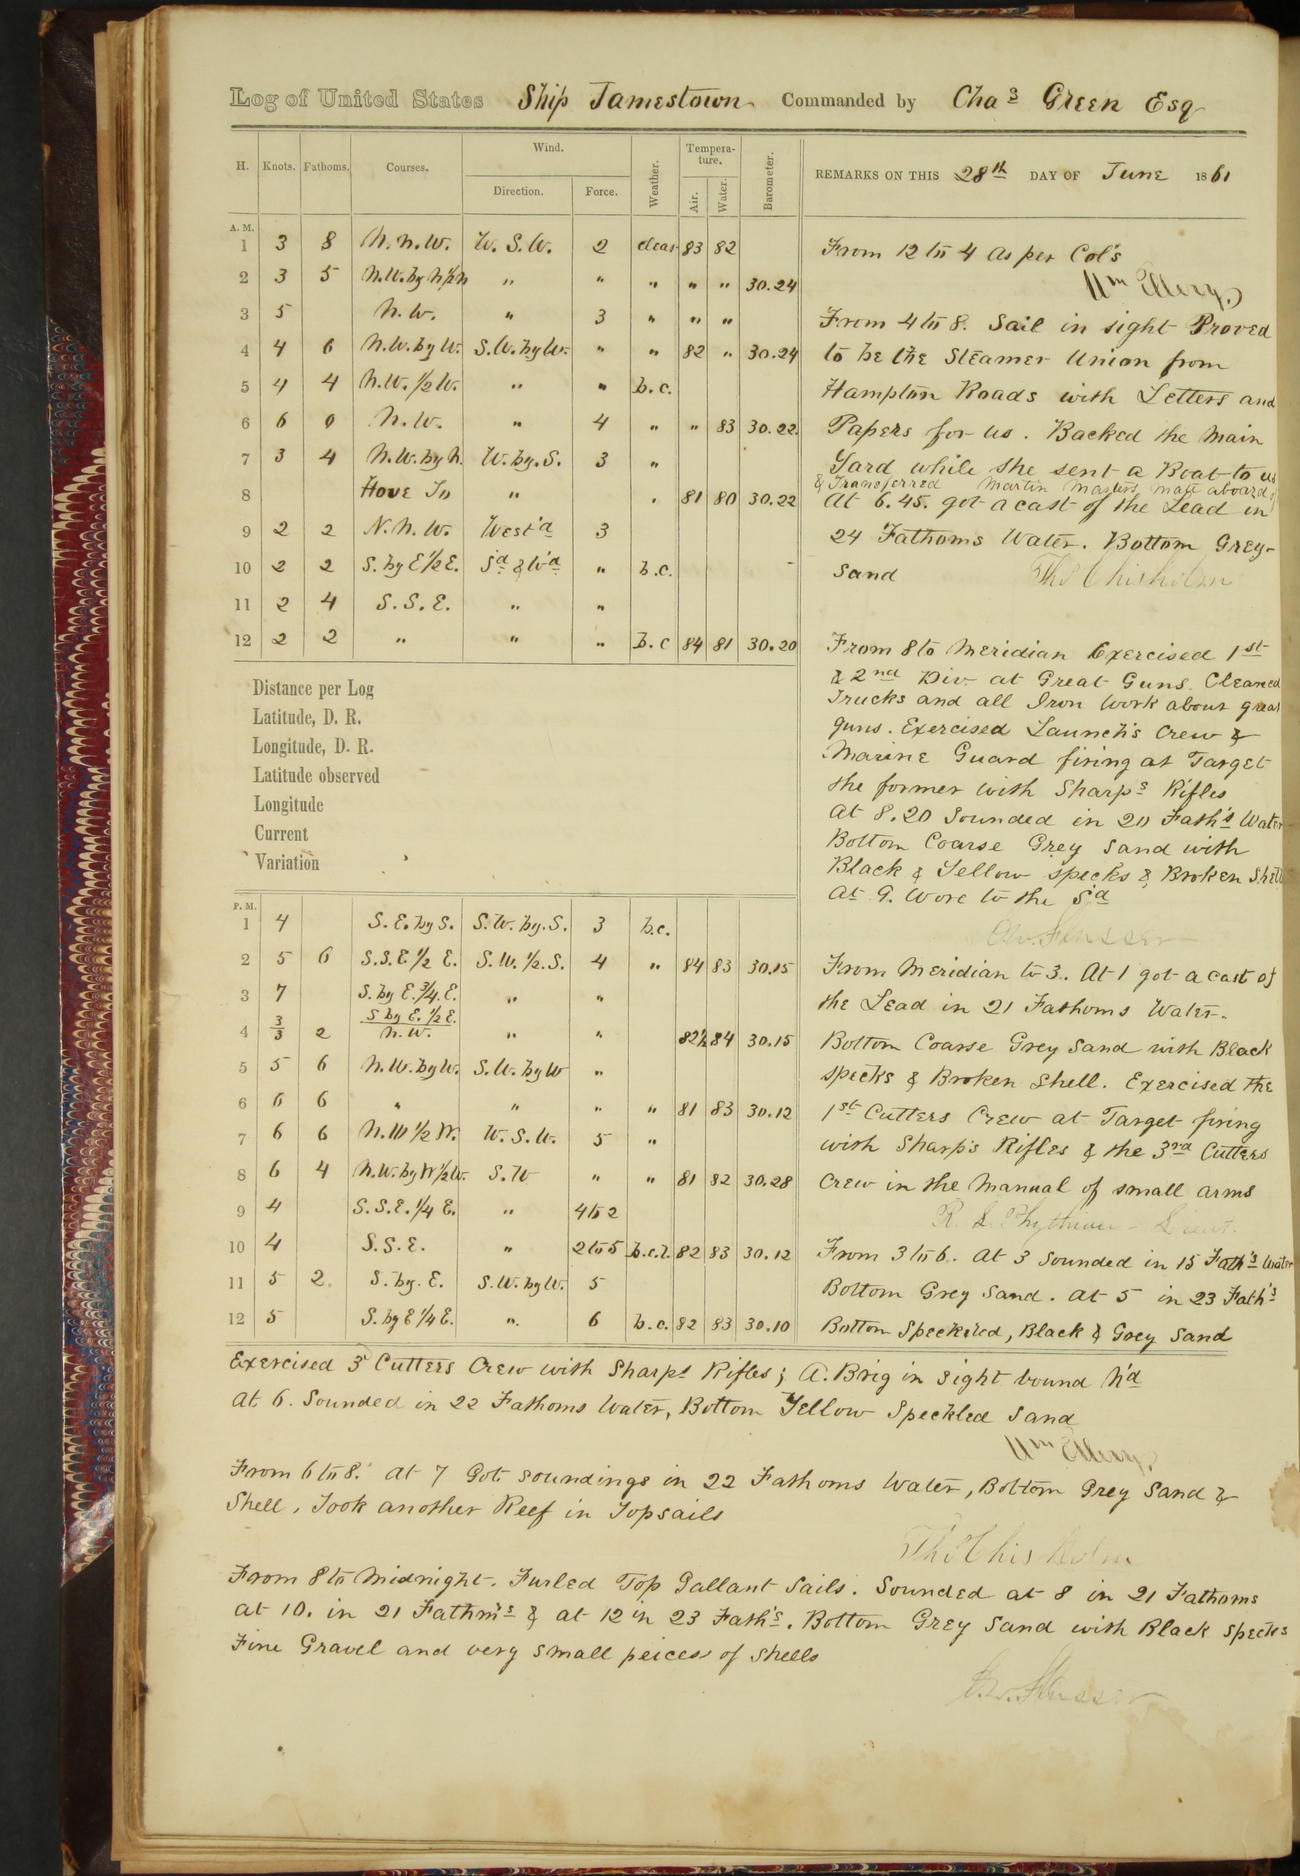 Log of United States Ship Jamestown Commanded by Chas Green Esq
H. Knots. Fathoms. Courses. Wind. Direction. Force. Weather. Tempera-ture. Air. Water. Barometer.
REMARKS ON THIS 28th DAY OF June 1861
A. M.
1 3 8 N.N.W. W.S.W. 2 clear 83 82
2 3 5 N.W. by N.½N " " " " " 30.24
3 5 N.W. " 3 " " "
4 4 6 N.W. by W. S.W. by W. " " 82 " 30.24
5 4 4 N.W. ½ W. " " b.c.
6 6 0 N.W. " 4 " " 83 30.22
7 3 4 N.W. by N. W. by S. 3 "
8 Hove To " . 81 80 30.22
9 2 2 N.N.W. West'd 3
10 2 2 S. by E ½ E. Sd & Wd " b.c.
11 2 4 S.S.E. " "
12 2 2 " " " b.c 84 81 30.20
Distance per Log
Latitude, D. R.
Longitude, D. R.
Latitude observed
Longitude
Current
Variation
P. M.
1 4 S.E. by S. S.W. by S. 3 b.c.
2 5 6 S.S.E. ½ E. S.W. ½ S. 4 " 84 83 30.15
3 7 S. by E. ¾ E. " "
4 3/3 2 S by E. ½ E. N.W. " " 82½ 84 30.15
5 5 6 N.W. by W. S.W. by W "
6 6 6 " " " " 81 83 30.12
7 6 6 N.W ½ W. W.S.W. 5 "
8 6 4 N.W. by W ½ W. S.W " " 81 82 30.28
9 4 S.S.E. ¼ E. " 4 to 2
10 4 S.S.E. " 2 to 5 b.c.l. 82 83 30.12
11 5 2 S. by E. S.W. by W. 5
12 5 S. by E ¼ E. " 6 b.c. 82 83 30.10
From 12 to 4 as per Col's
Wm Ellery.
From 4 to 8. Sail in sight Proved
to be the Steamer Union from
Hampton Roads with Letters and
Papers for us. Backed the Main
Yard while she sent a Boat to us
& Transferred Martin Masters mate aboard of
At 6.45. got a cast of the Lead in
24 Fathoms Water. Bottom Grey
Sand
Ths Chisholm
From 8 to Meridian Exercised 1st
& 2nd Div. at Great Guns. Cleaned
Trucks and all Iron Work about great
guns. Exercised Launch's Crew &
Marine Guard firing at Target
the former with Sharps Rifles
At 8.20 Sounded in 20 Fath's Water
Bottom Coarse Grey Sand with
Black & Yellow specks & Broken Shell
At 9. Wore to the Sd
C.W. Flusser
From Meridian to 3. At 1 got a cast of
the Lead in 21 Fathoms Water.
Bottom Coarse Grey Sand with Black
specks & Broken Shell. Exercised the
1st Cutters Crew at Target firing
with Sharp's Rifles & the 3rd Cutters
Crew in the Manual of small arms
R. L. Phythian - Lieut.
From 3 to 6. At 3 Sounded in 15 Fath's Water
Bottom Grey Sand. at 5 in 23 Fath's
Bottom Speckeled, Black & Grey Sand
Exercised 3d Cutters Crew with Sharps Rifles; A. Brig in sight bound N'd
At 6. Sounded in 22 Fathoms Water, Bottom Yellow Speckled Sand
Wm Ellery.
From 6 to 8. At 7 Got soundings in 22 Fathoms Water, Bottom Grey Sand &
Shell. Took another Reef in Topsails
Ths Chisholm
From 8 to Midnight. Furled Top Gallant Sails. Sounded at 8 in 21 Fathoms
at 10. in 21 Fathm's & at 12 in 23 Fath's. Bottom Grey Sand with Black Specks
Fine Gravel and very small peices of Shells
C.W. Flusser